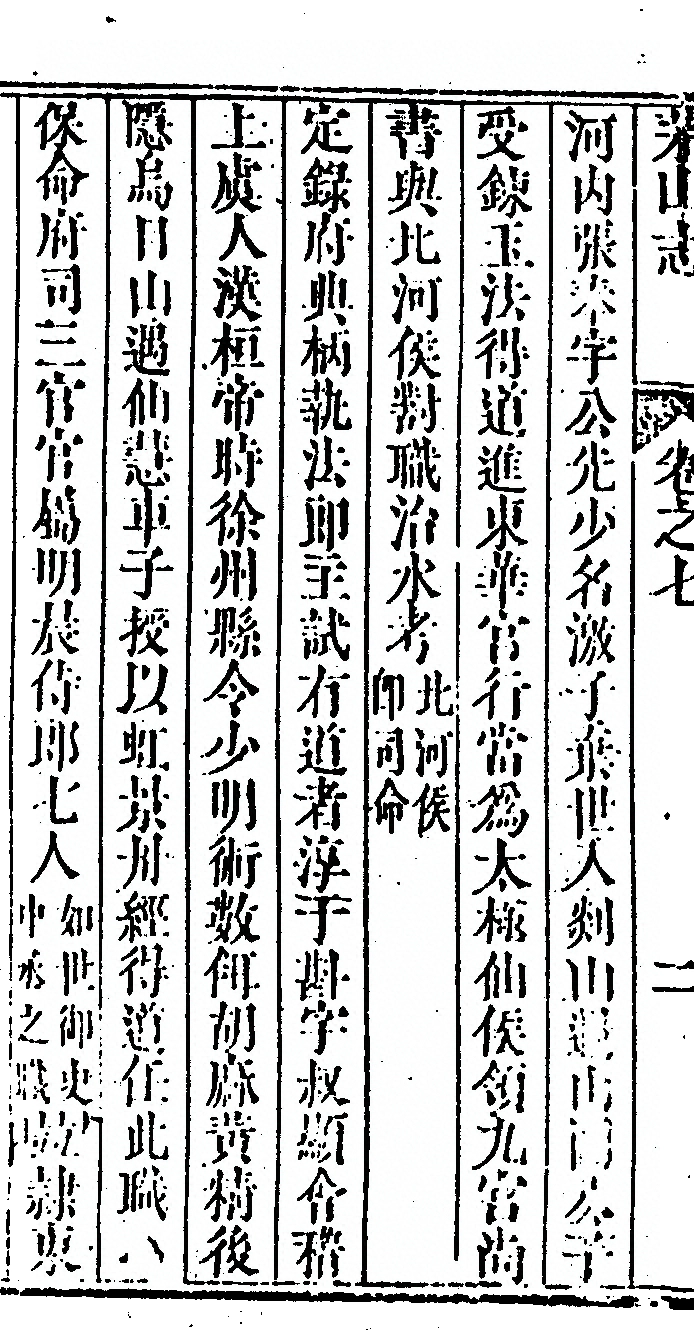 茅山志 卷之七 二
河内張奉字公先少名激子棄世入剡山遇山圖公子
受鍊玉法得道進東華宫行當爲太極仙侯領九宫尚
書與北河侯對職治水考北河侯即司命
定錄府典柄執法郎主試有道者淳于斟字叔顯會稽
上虞人漢桓帝時徐州縣令少明術數餌胡麻黄精後
隱烏目山遇仙慧車子授以虹景丹經得道任此職
保命府司三官官屬明晨侍郎七人如世御史中丞之職隷東